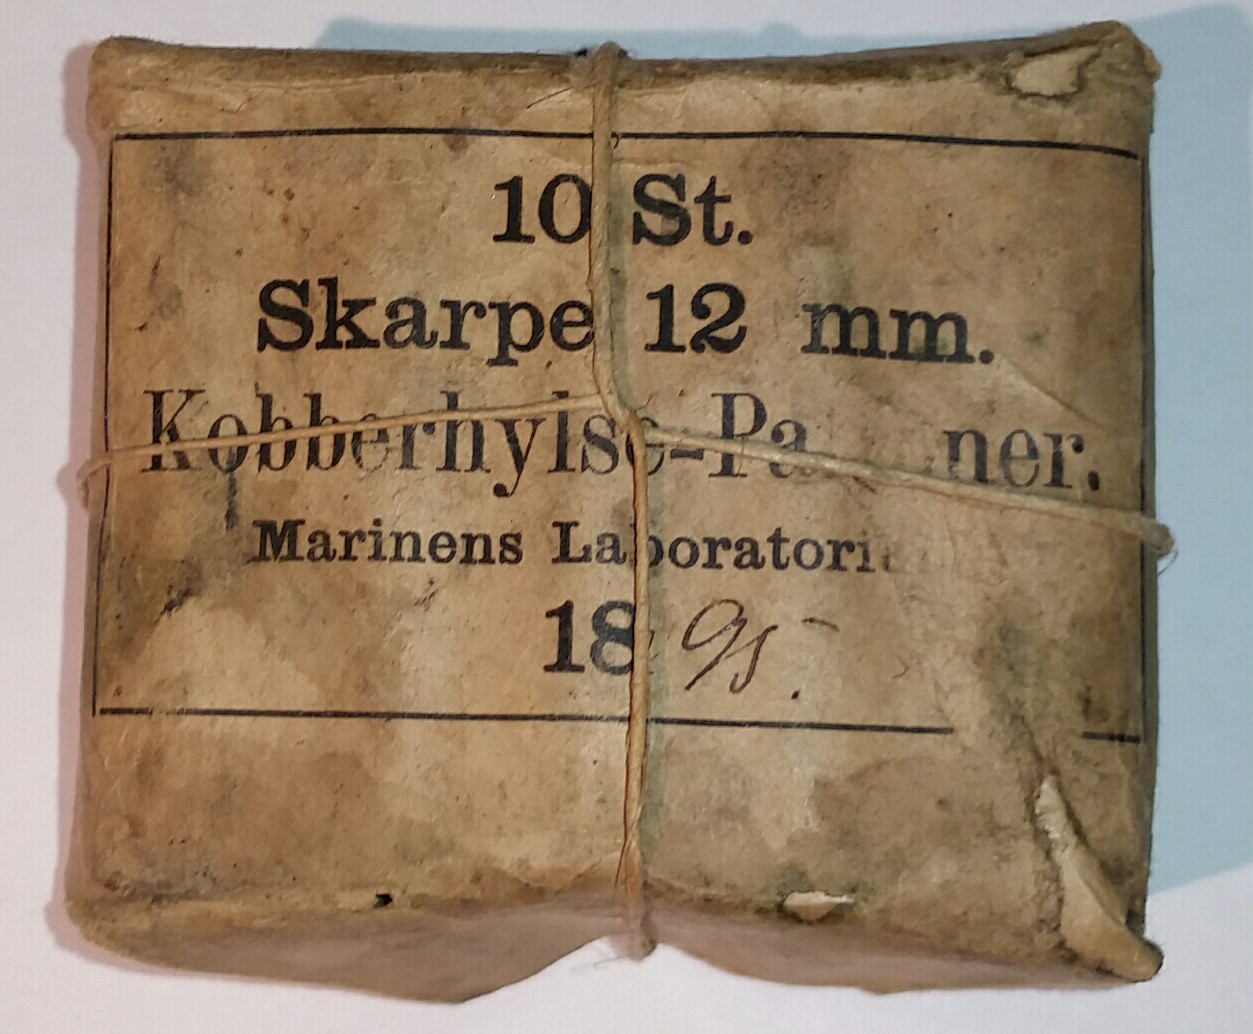 10 St.
Skarpe 12 mm.
Kobberhylse-Pa ner.
Marinens Laboratori
1895.